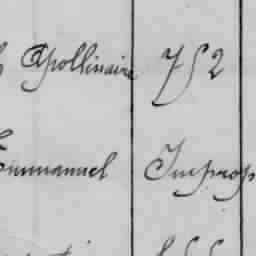 Apollinaire 752
Emmanuel Improp